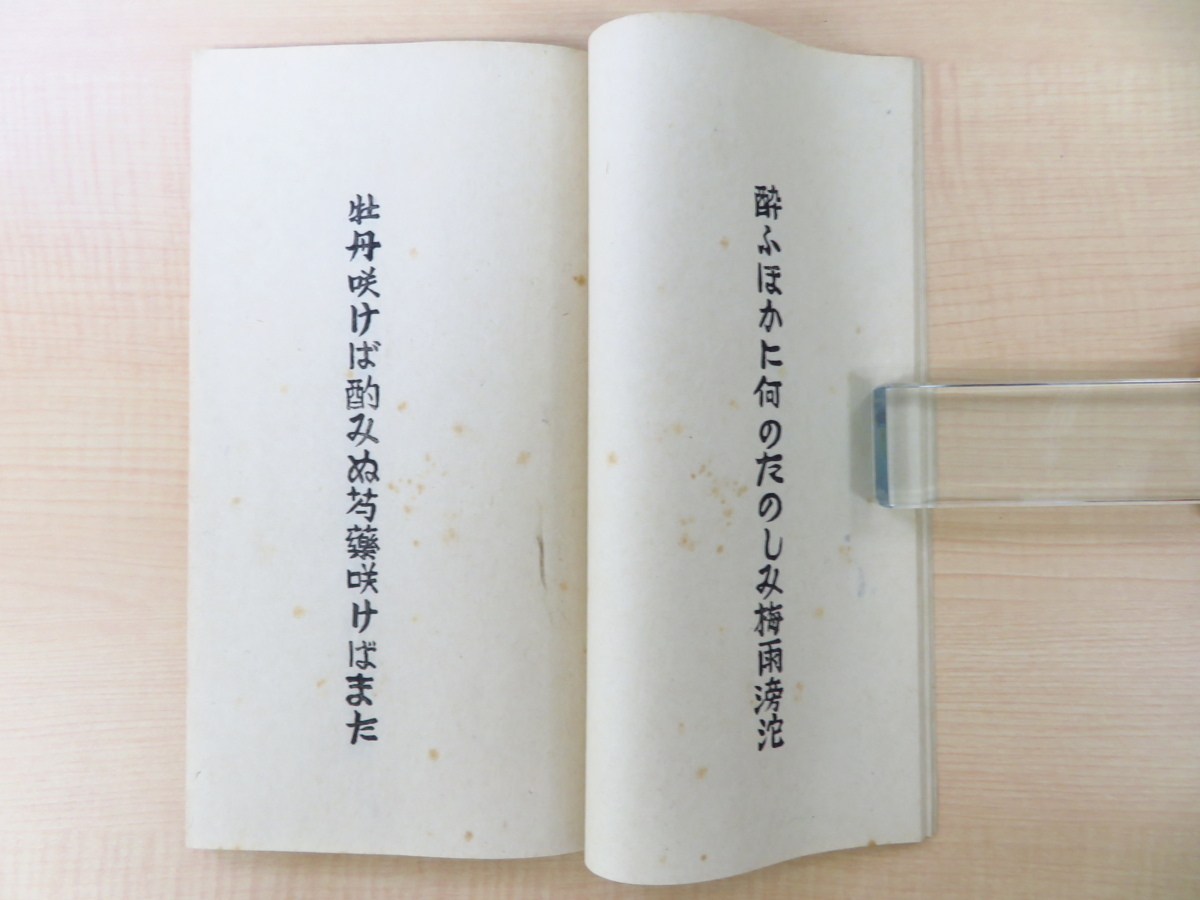 酔ふほかに何のたのしみ梅雨滂沱
牡丹咲けば酌みぬ芍藥咲けばまた